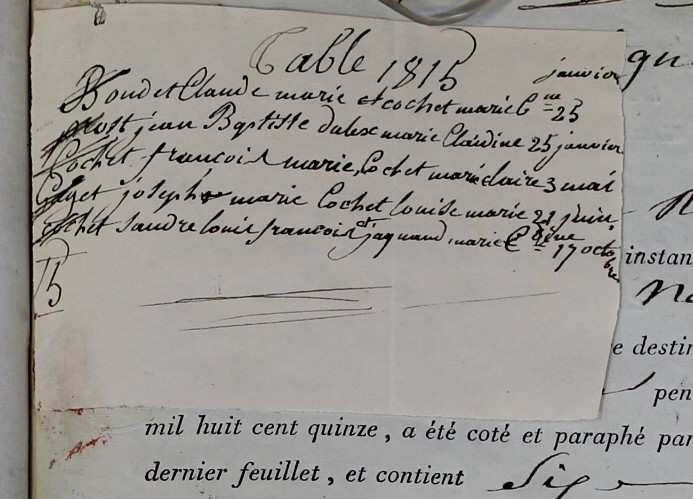 Table 1815
janvier
Boudet Claude marie et cochet marie C ne 25
jean Baptiste dalex marie Claudine 25 janvier
Cochet francois marie, Cochet marie claire 3 mai
Gayet joseph marie Cochet louise marie 21 juin
cochet sandre louis francois et jaquand marie C dine 17 octobre
5
instan
e destin
pen
mil huit cent quinze, a été coté et paraphé par
dernier feuillet, et contient